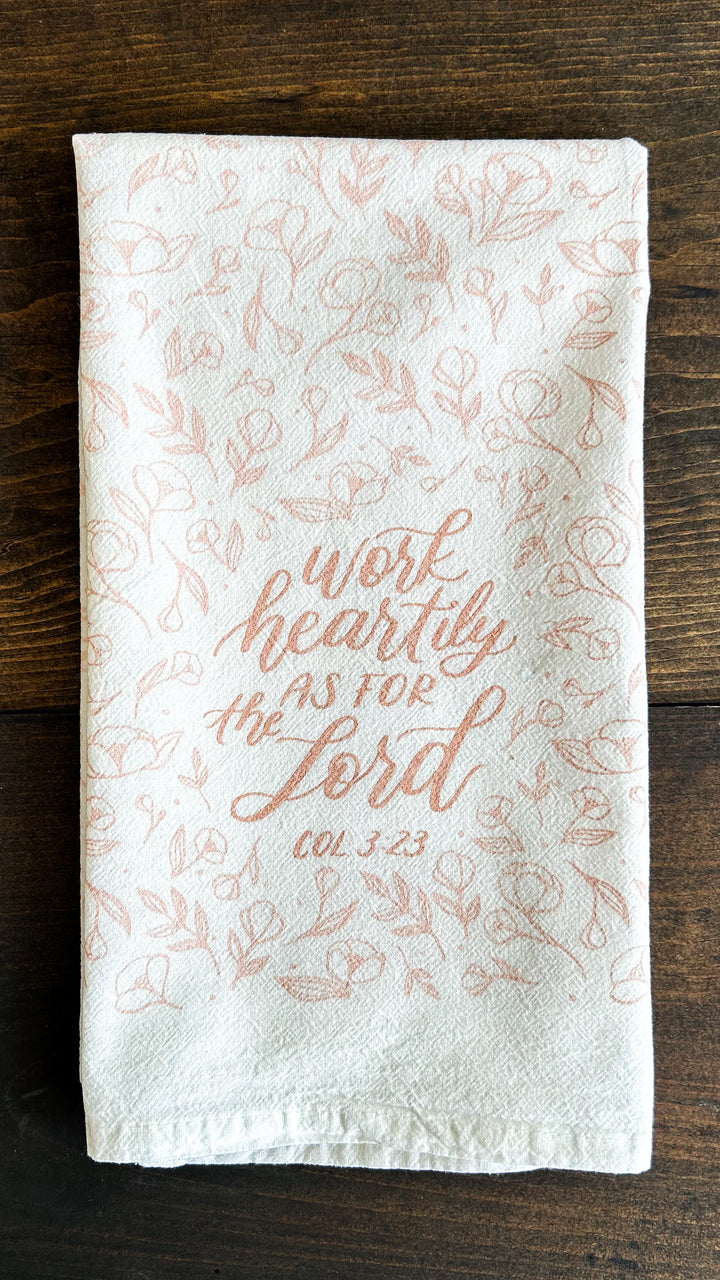 work
heartily
AS FOR
the Lord
COL 3-23